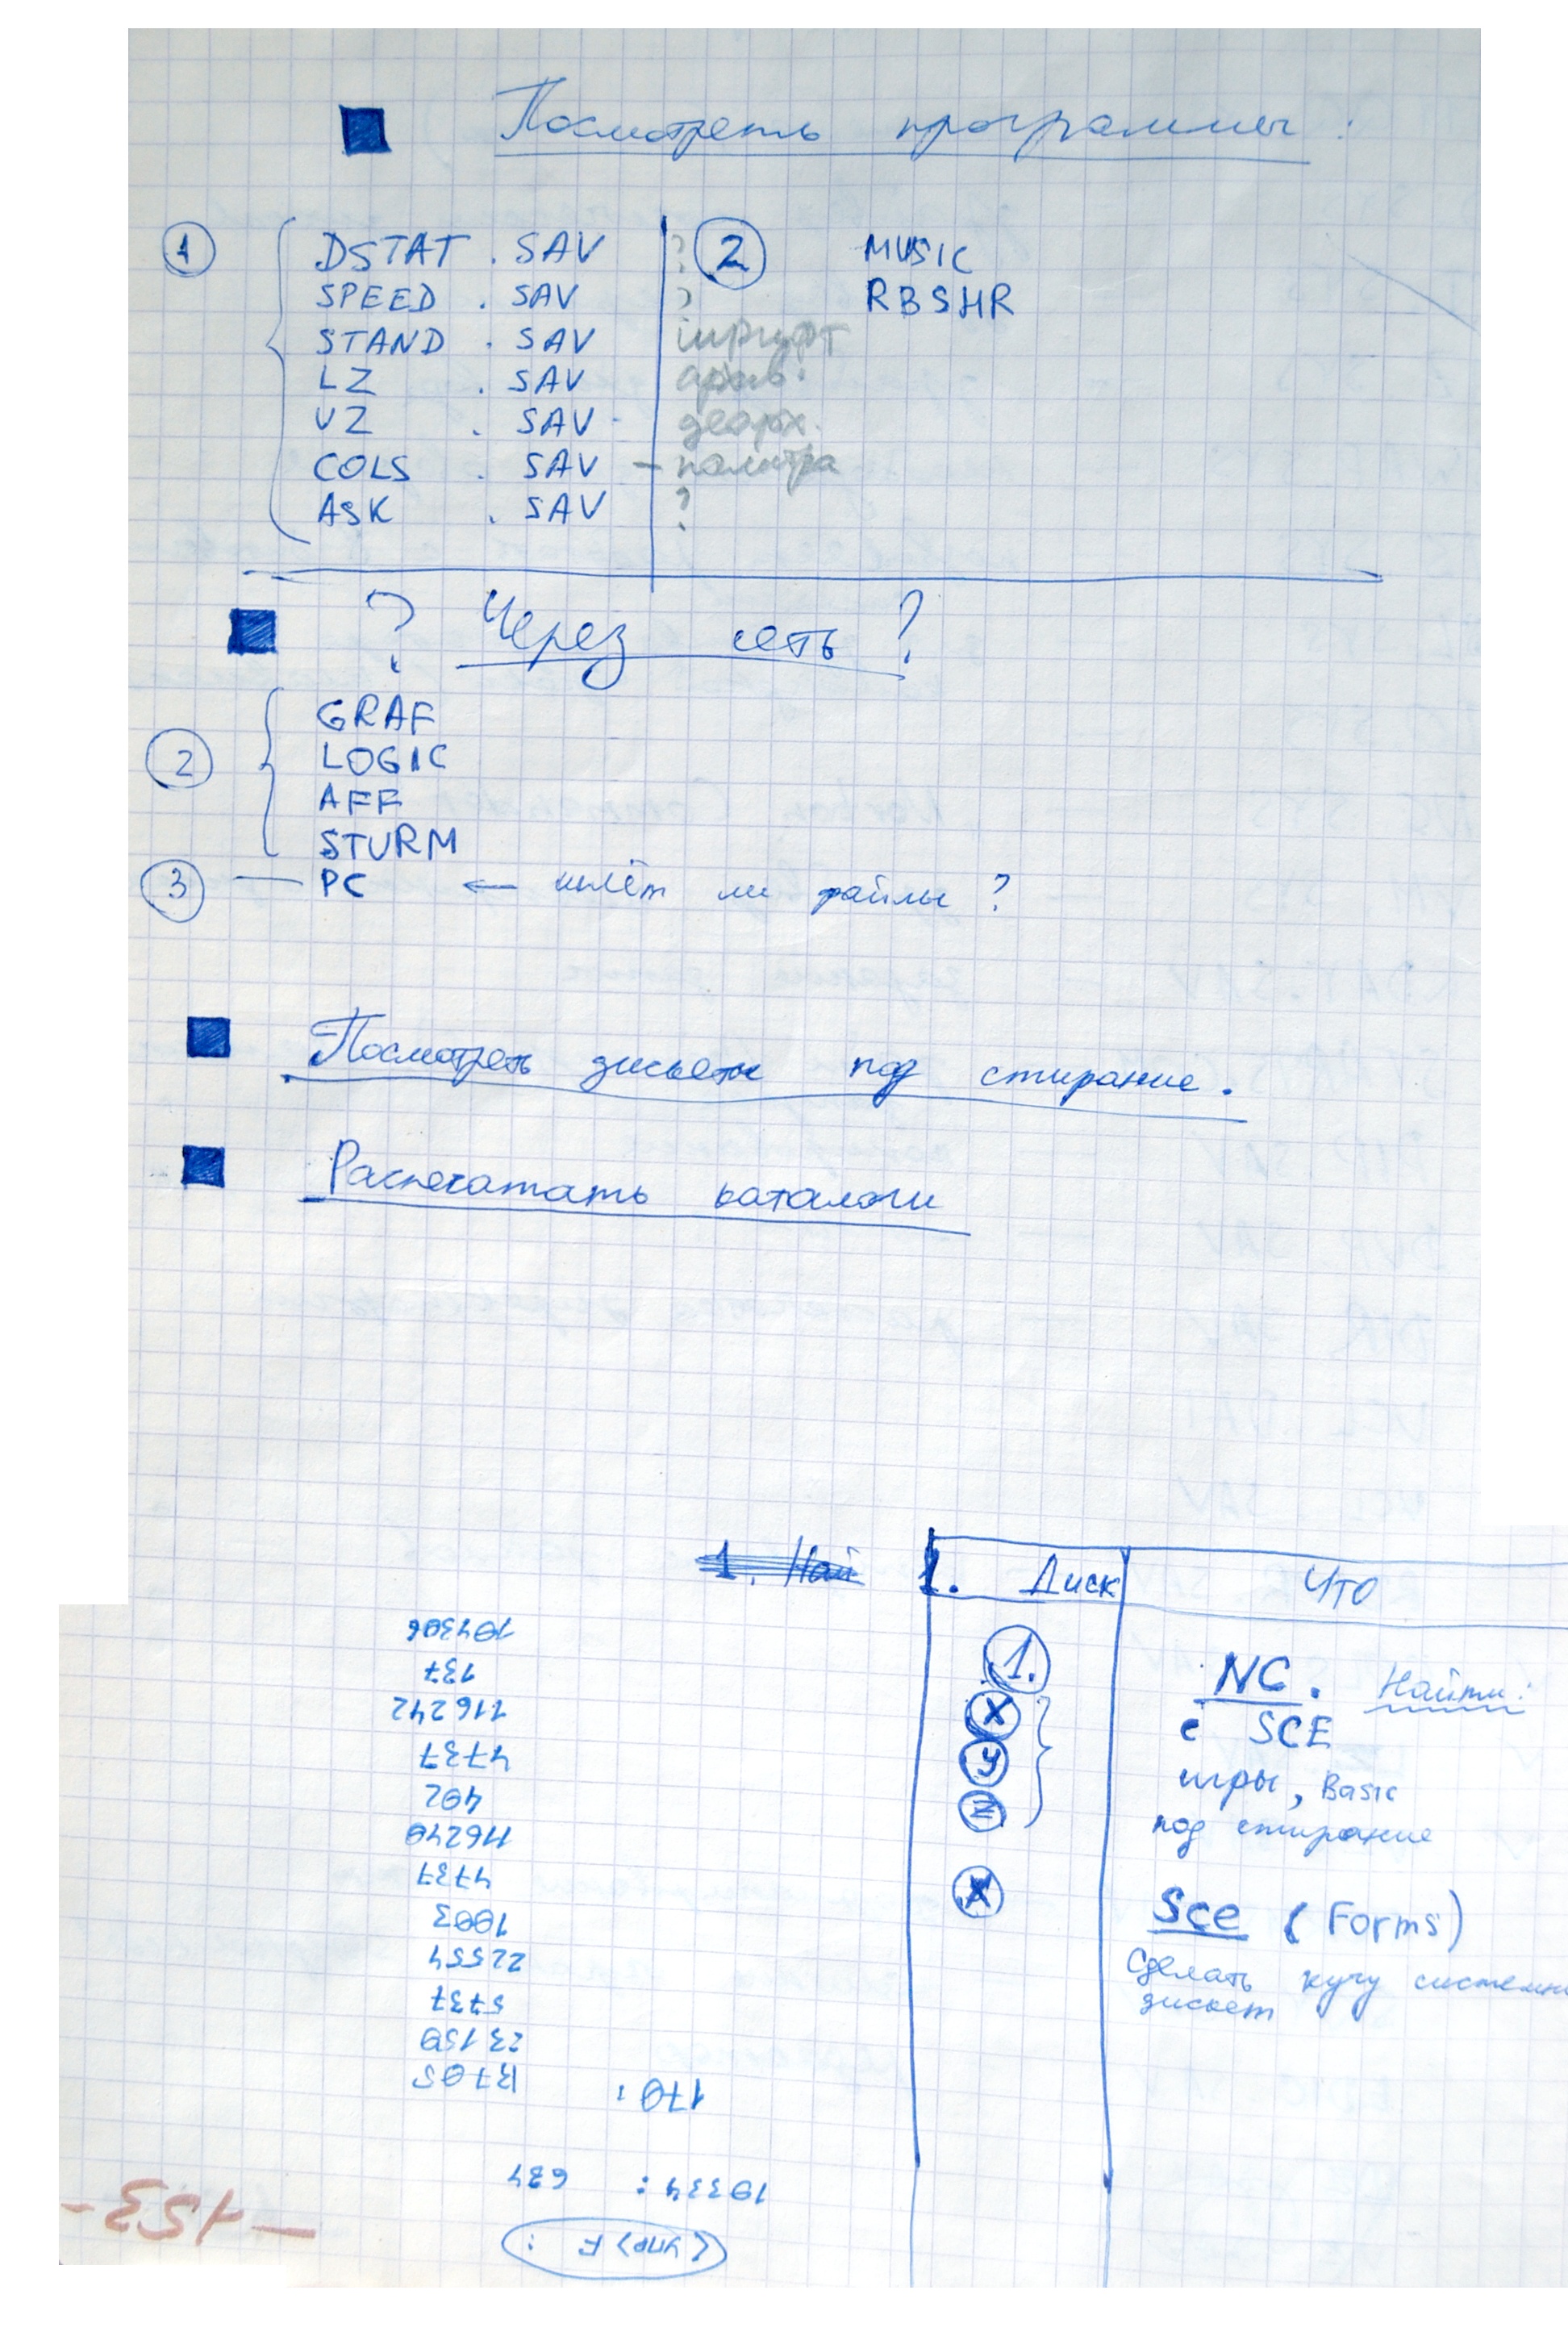 Посмотреть программы:
1 DSTAT . SAV ?
SPEED . SAV ?
STAND . SAV шрифт
LZ . SAV архив.
UZ . SAV деарх.
COLS . SAV — палитра
ASK . SAV ?
2 MUSIC
RBSHR
? Через сеть ?
2 GRAF
LOGIC
AFF
STURM
3 — PC ← шлёт ли файлы ?
Посмотреть дискеты под стирание.
Распечатать каталоги
1. Най
1. Диск Что
1. NC. Найти:
X с SCE
У игры, Basic
Z под стирание
X Sce (Forms)
Сделать кучу системн
дискет
(УПР) F :
19334 : 634
170 :
23150
5737
22554
1003
4737
116270
402
4737
116242
137
104306
-153-